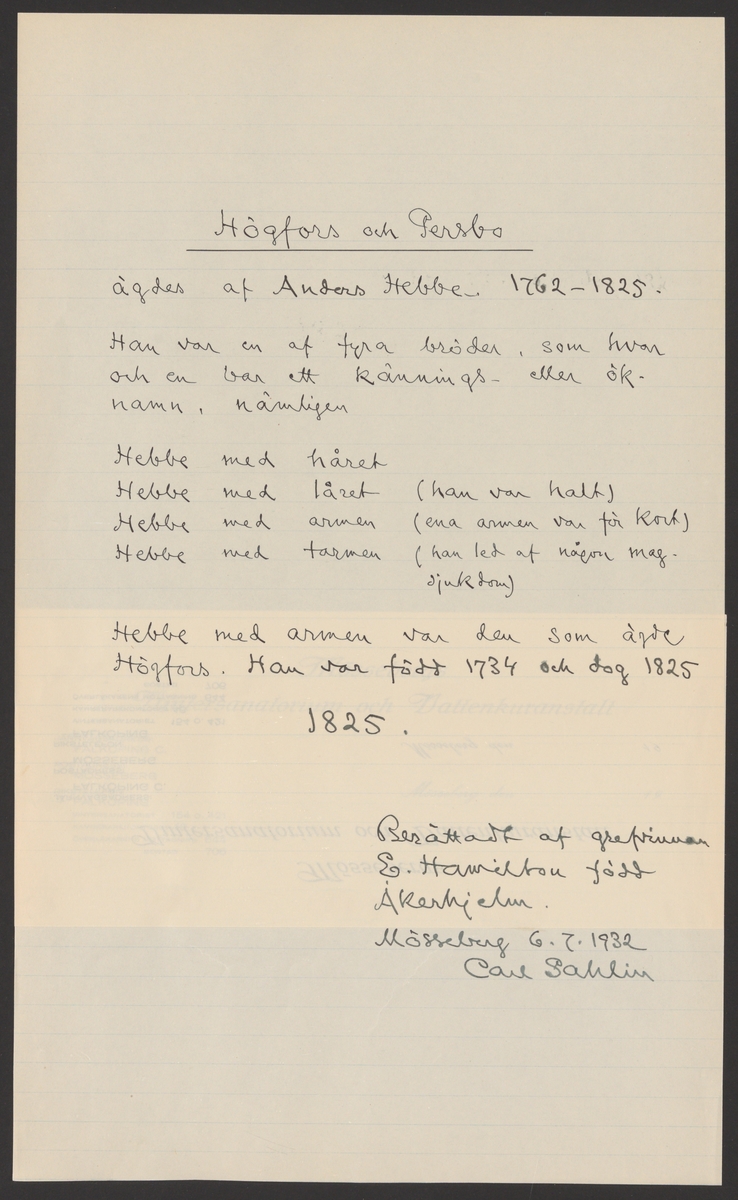 Högfors och Persbo
ägdes af Anders Hebbe. 1762-1825.
Han var en af fyra bröder, som hvar
och en bar ett kännings- eller ök-
namn, nämligen
Hebbe med håret
Hebbe med låret (han var halt)
Hebbe med armen (ena armen var för kort)
Hebbe med tarmen (han led af någon mag-
sjukdom)
Hebbe med armen var den som ägde
Högfors. Han var född 1734 och dog 1825
1825.
Berättadt af grefvinnan
E. Hamilton född
Åkerhjelm.
Mösseberg 6.7.1932
Carl Sahlin